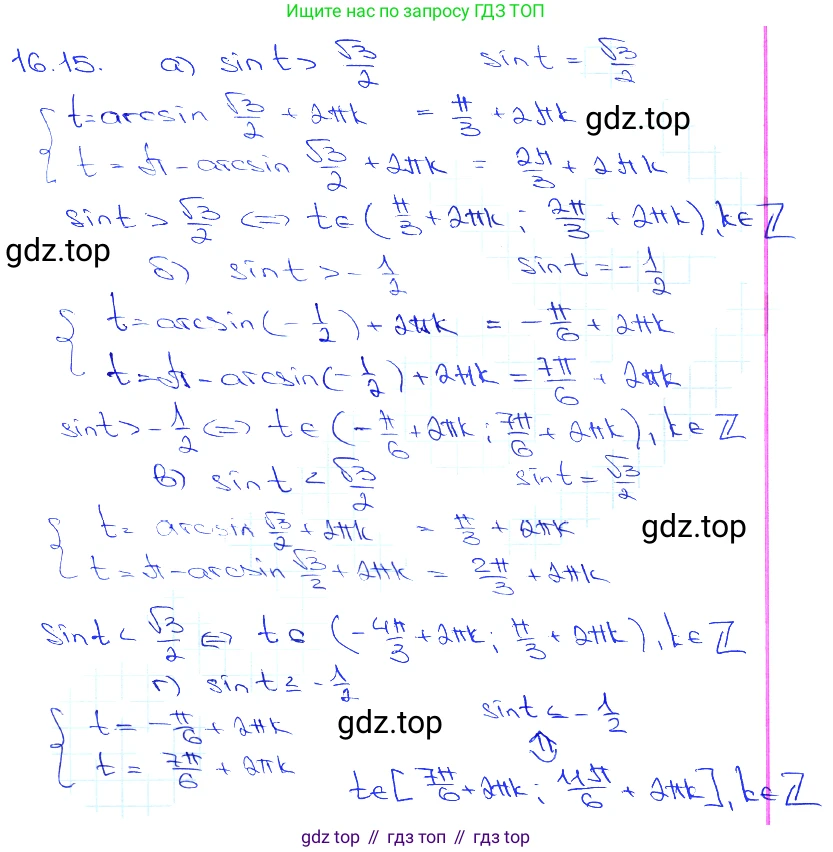 Ищите нас по запросу ГДЗ ТОП
16.15. а) sin t > √3/2 sin t = √3/2
{ t = arcsin √3/2 + 2πk = π/3 + 2πk
t = π - arcsin √3/2 + 2πk = 2π/3 + 2πk
gdz.top
sin t > √3/2 <=> t∈(π/3 + 2πk ; 2π/3 + 2πk), k∈ℤ
gdz.top
б) sin t > -1/2 sin t = -1/2
{ t = arcsin(-1/2) + 2πk = -π/6 + 2πk
t = π - arcsin(-1/2) + 2πk = 7π/6 + 2πk
sin t > -1/2 <=> t∈(-π/6 + 2πk ; 7π/6 + 2πk), k∈ℤ
в) sin t < √3/2 sin t = √3/2
{ t = arcsin √3/2 + 2πk = π/3 + 2πk
gdz.top
t = π - arcsin √3/2 + 2πk = 2π/3 + 2πk
sin t < √3/2 <=> t∈(-4π/3 + 2πk ; π/3 + 2πk), k∈ℤ
г) sin t ≤ -1/2
{ t = -π/6 + 2πk
gdz.top
sin t ≤ -1/2
t = 7π/6 + 2πk
⇕
t∈[7π/6 + 2πk ; 11π/6 + 2πk], k∈ℤ
gdz top // гдз топ // гдз top